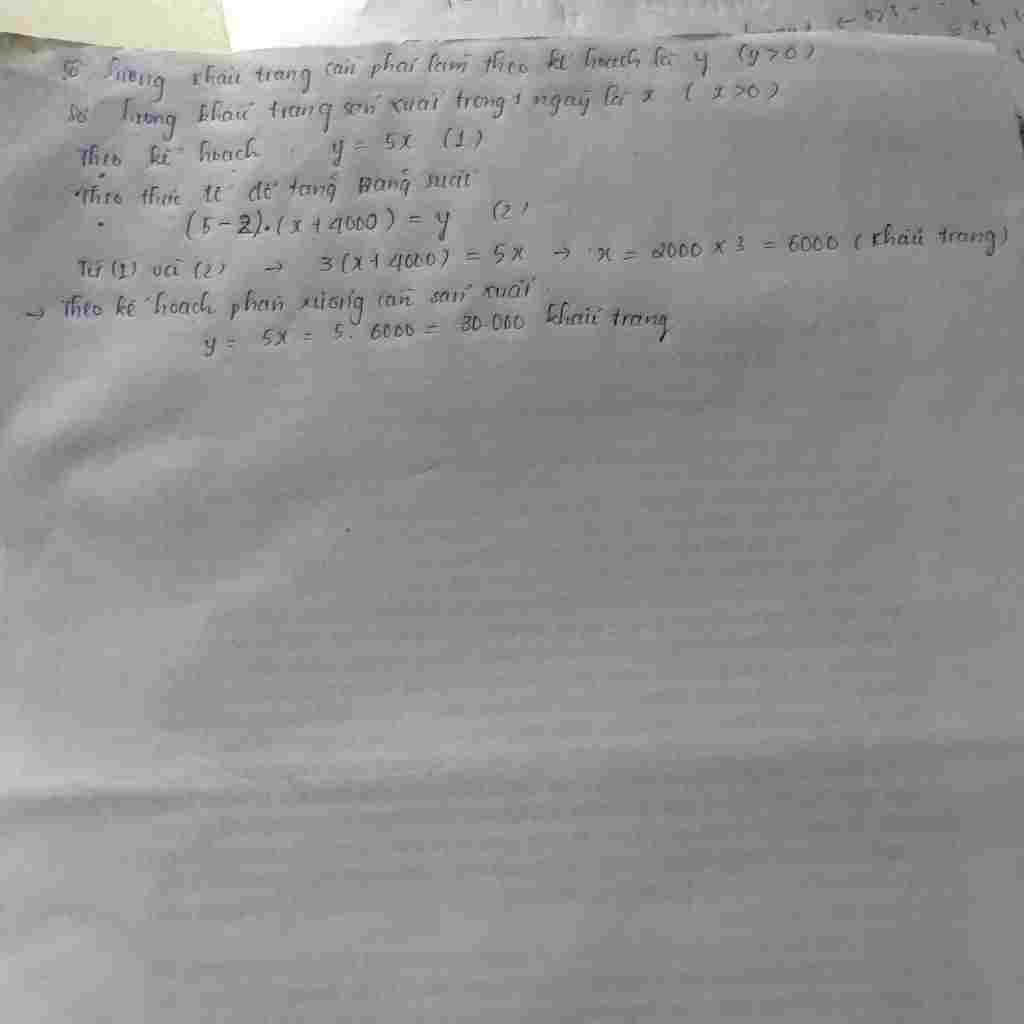 Số lượng khẩu trang cần phải làm theo kế hoạch là y (y>0)
Số lượng khẩu trang sản xuất trong 1 ngày là x (x>0)
Theo kế hoạch y = 5x (1)
Theo thực tế để tăng năng suất
(5-2).(x+4000) = y (2)
Từ (1) và (2) → 3(x+4000) = 5x → x = 2000 x 3 = 6000 (khẩu trang)
→ Theo kế hoạch phân xưởng cần sản xuất
y = 5x = 5. 6000 = 30.000 khẩu trang